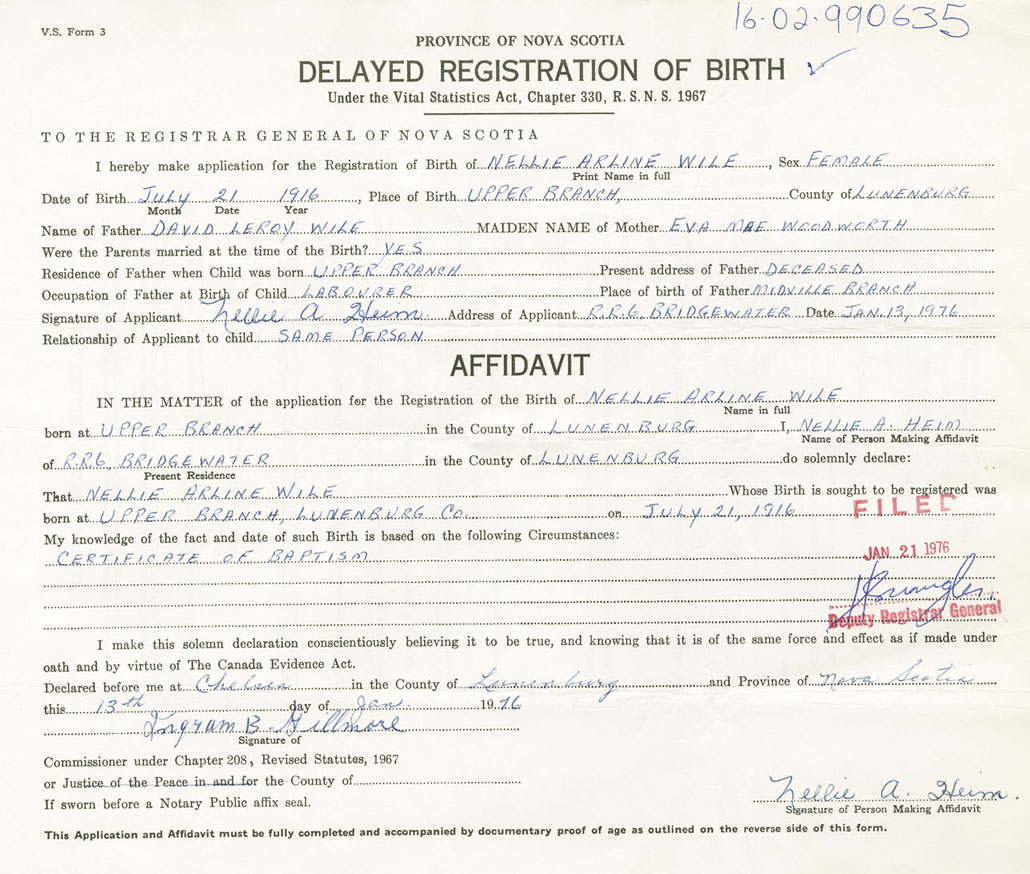 V.S. Form 3
16-02-990635
PROVINCE OF NOVA SCOTIA
DELAYED REGISTRATION OF BIRTH ✓
Under the Vital Statistics Act, Chapter 330, R.S.N.S. 1967
TO THE REGISTRAR GENERAL OF NOVA SCOTIA
I hereby make application for the Registration of Birth of NELLIE ARLINE WILE, Sex FEMALE
Print Name in full
Date of Birth JULY 21 1916, Place of Birth UPPER BRANCH, County of LUNENBURG
Month Date Year
Name of Father DAVID LEROY WILE MAIDEN NAME of Mother EVA MAE WOODWORTH
Were the Parents married at the time of the Birth? YES
Residence of Father when Child was born UPPER BRANCH Present address of Father DECEASED
Occupation of Father at Birth of Child LABOURER Place of birth of Father MIDVILLE BRANCH
Signature of Applicant Nellie A Heim Address of Applicant R.R.6 BRIDGEWATER Date JAN.13, 1976
Relationship of Applicant to child SAME PERSON
AFFIDAVIT
IN THE MATTER of the application for the Registration of the Birth of NELLIE ARLINE WILE
Name in full
born at UPPER BRANCH in the County of LUNENBURG I, NELLIE A. HEIM
Name of Person Making Affidavit
of R.R.6, BRIDGEWATER in the County of LUNENBURG do solemnly declare:
Present Residence
That NELLIE ARLINE WILE Whose Birth is sought to be registered was
born at UPPER BRANCH, LUNENBURG CO. on JULY 21, 1916
FILED
My knowledge of the fact and date of such Birth is based on the following Circumstances:
CERTIFICATE OF BAPTISM
JAN 21 1976
Deputy Registrar General
I make this solemn declaration conscientiously believing it to be true, and knowing that it is of the same force and effect as if made under
oath and by virtue of The Canada Evidence Act.
Declared before me at Chelsea in the County of Lunenburg and Province of Nova Scotia
this 13th day of Jan. 1976
Ingram B. Gillmore
Signature of
Commissioner under Chapter 208, Revised Statutes, 1967
or Justice of the Peace in and for the County of
If sworn before a Notary Public affix seal.
Nellie A. Heim.
Signature of Person Making Affidavit
This Application and Affidavit must be fully completed and accompanied by documentary proof of age as outlined on the reverse side of this form.